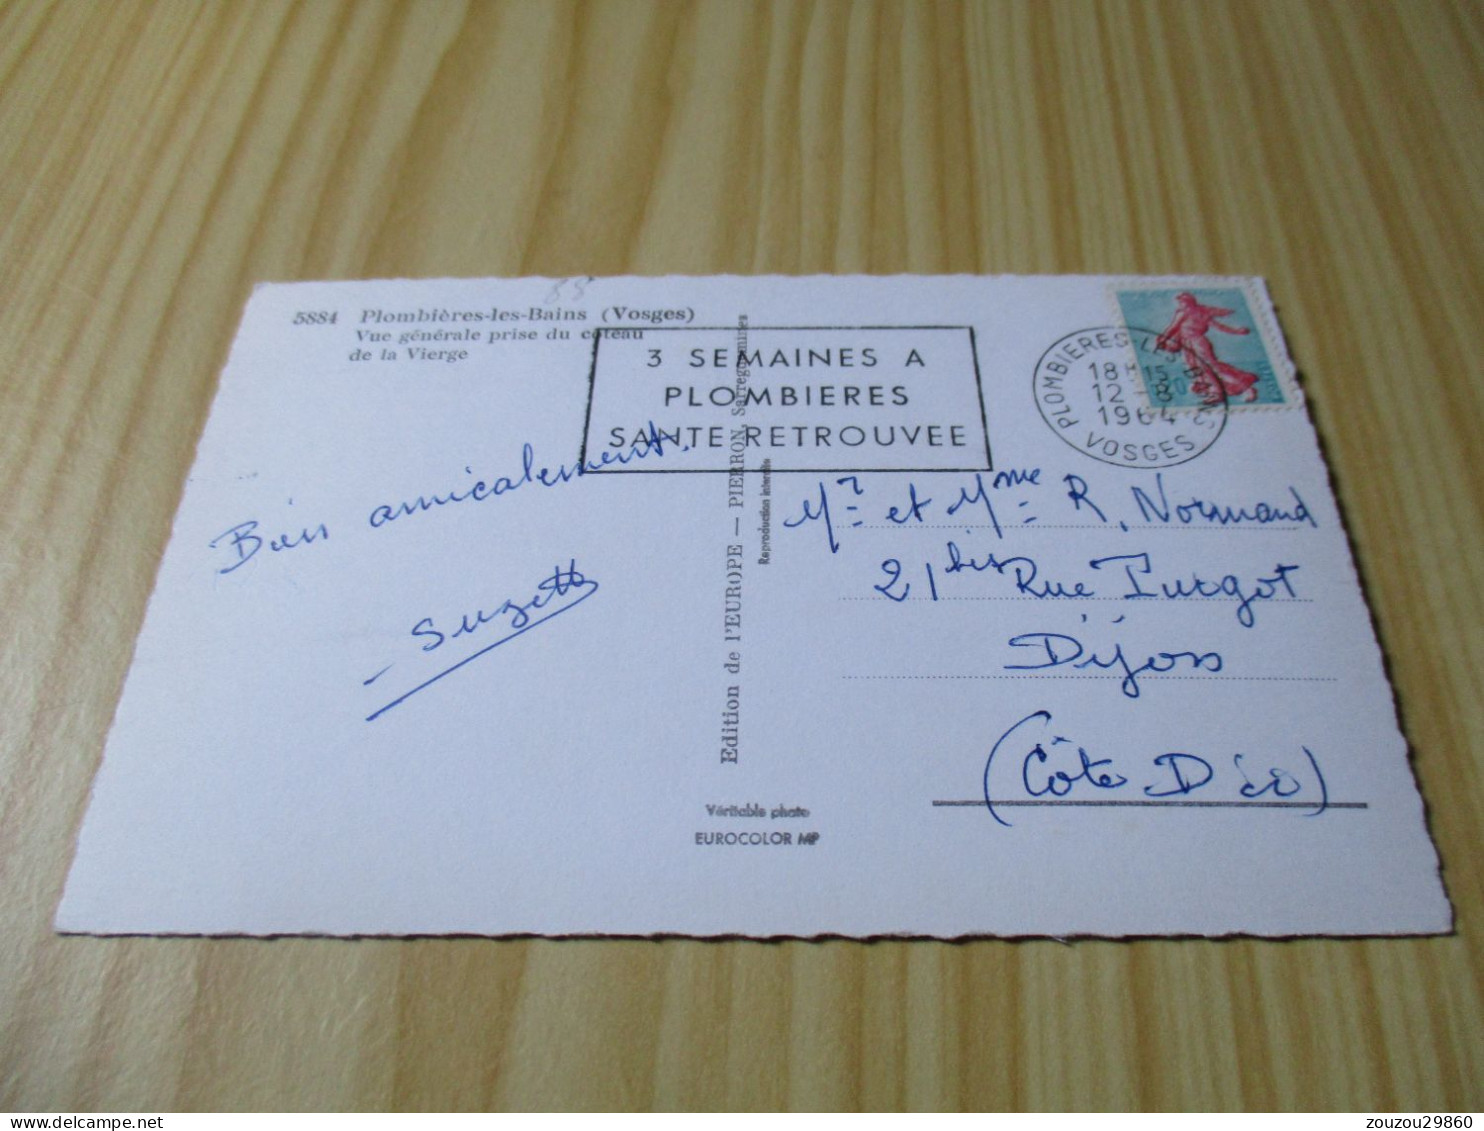 88
5884 Plombières-les-Bains (Vosges)
Vue générale prise du côteau
de la Vierge
3 SEMAINES A
PLOMBIERES
SANTE RETROUVEE
PLOMBIERES-LES-BAINS
18 H 15
12 - 8
1964
VOSGES
Bien amicalement.
- Suzette
Edition de l'EUROPE — PIERRON, Sarreguemines
Reproduction interdite
Mr et Mme R. Normand
21 bis Rue Turgot
Dijon
(Côte D'Or)
Véritable photo
EUROCOLOR MP
zouzou29860